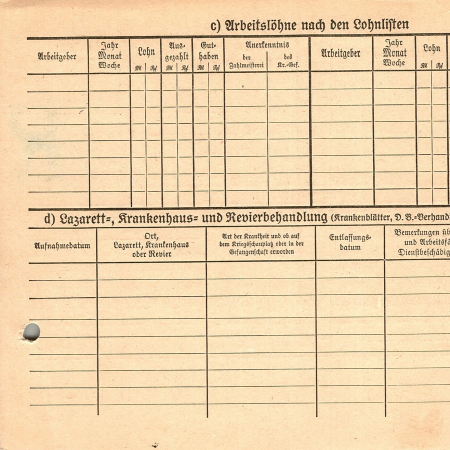 c) Arbeitslöhne nach den Lohnlisten
Arbeitgeber Jahr Monat Woche Lohn Aus- gezahlt Gut- haben Anerkenntnis Arbeitgeber Jahr Monat Woche Lohn
ℛℳ ₰ ℛℳ ₰ ℛℳ ₰ der Zahlmeisterei des Kr.-Gef. ℛℳ ₰
d) Lazarett-, Krankenhaus- und Revierbehandlung (Krankenblätter, D. B.-Verhand
Aufnahmedatum
Ort,
Lazarett, Krankenhaus
oder Revier
Art der Krankheit und ob auf
dem Kriegsschauplatz oder in der
Gefangenschaft erworben
Entlassungs-
datum
Bemerkungen üb
und Arbeitsfä
Dienstbeschädig